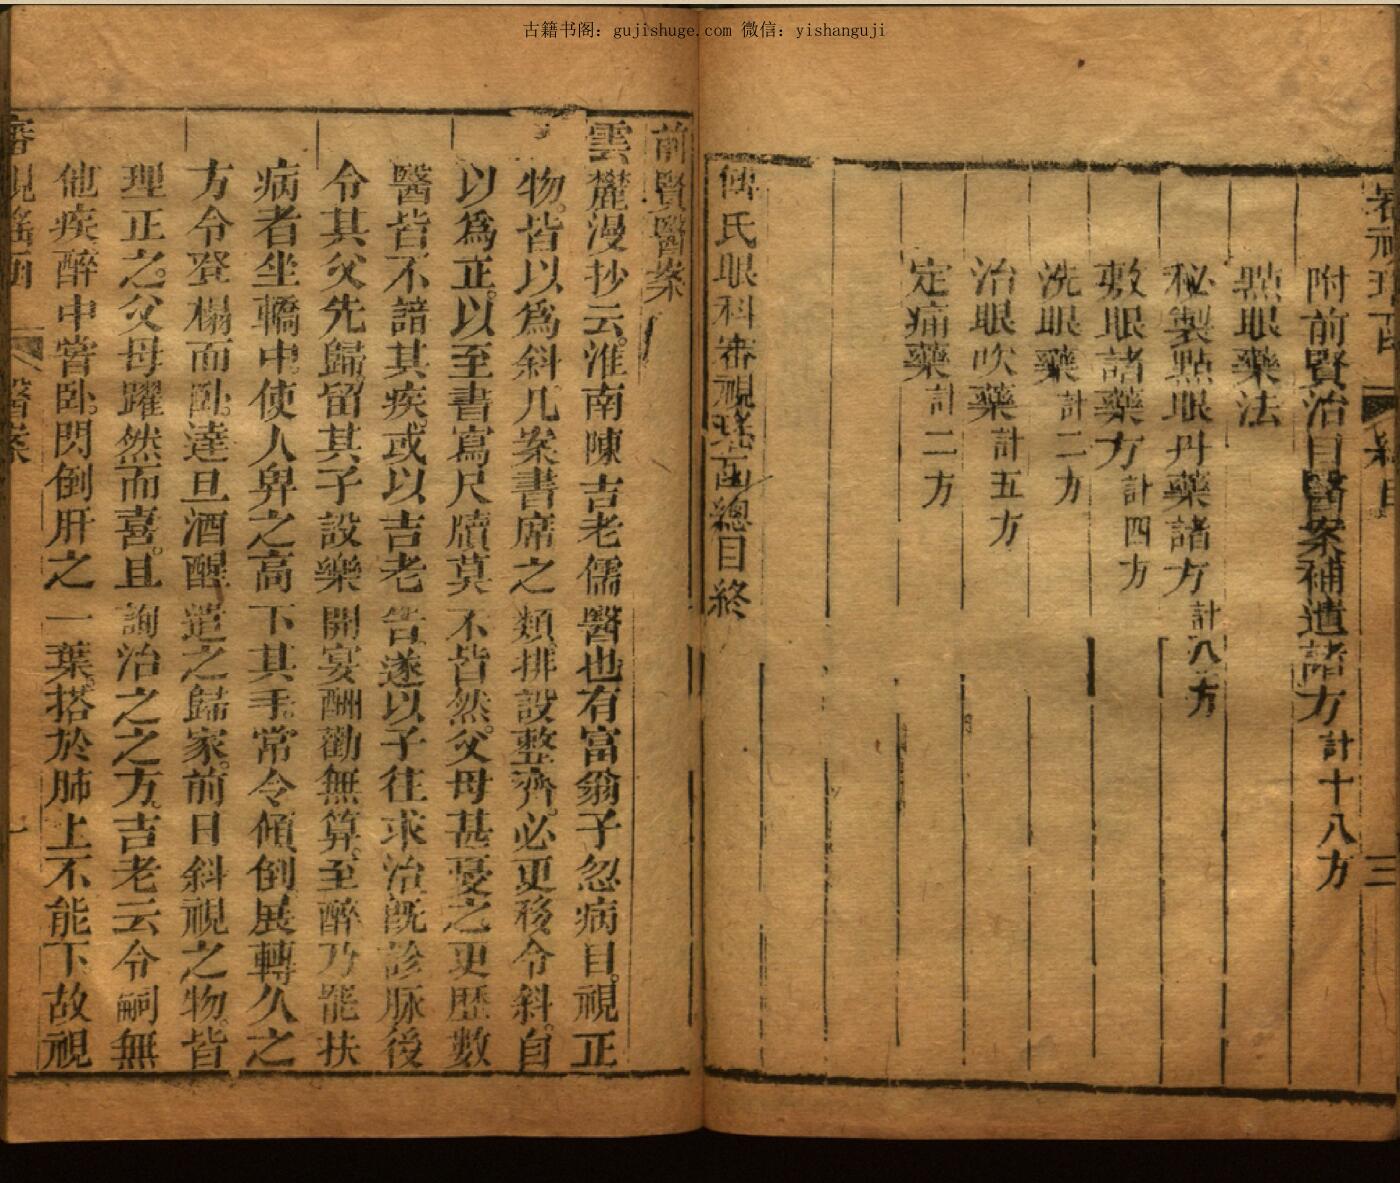 古籍书阁：gujishuge.com 微信：yishanguji
審視瑤函 總目 三
附前賢治目醫案補遺諸方計十八方
點眼藥法
秘製點眼丹藥諸方計八方
敷眼諸藥方計四方
洗眼藥計二方
治眼吹藥計五方
定痛藥計二方
傅氏眼科審視瑤函總目終
前賢醫案
雲麓漫抄云。淮南陳吉老儒醫也有富翁子忽病目。視正
物。皆以爲斜几案書席之類。排設整齊。必更移令斜。自
以爲正。以至書寫尺牘莫不皆然。父母甚憂之更歷數
醫皆不諳其疾。或以吉老告。遂以子往求治旣診脉後
令其父先歸留其子設樂開宴酬勸無算。至醉乃罷扶
病者坐轎中。使人舁之高下其手。常令傾倒。展轉久之
方令登榻而臥。達旦酒醒遣之歸家。前日斜視之物。皆
理正之。父母躍然而喜。且詢治之之方。吉老云令嗣無
他疾醉中嘗臥。閃倒肝之一葉。搭於肺上不能下。故視
審視瑤函 醫案 一